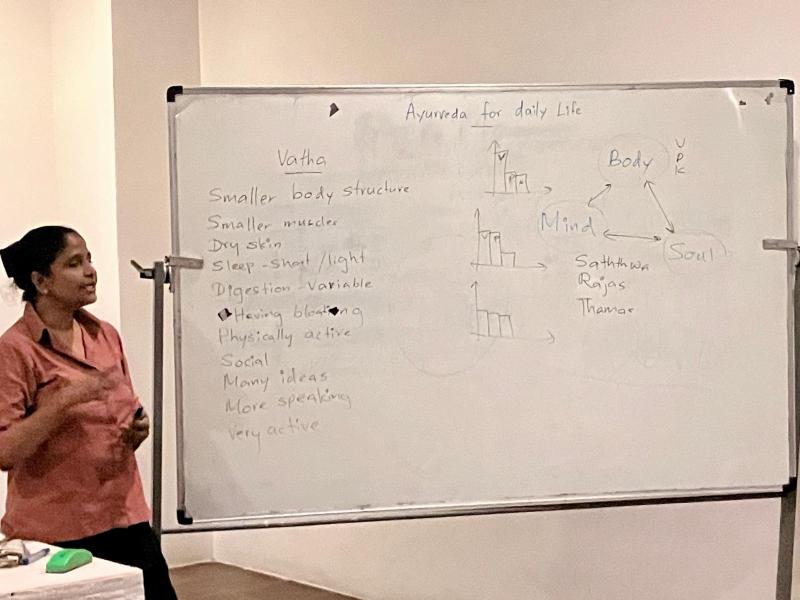 Ayurveda for daily Life
Vatha
Smaller body structure
Smaller muscles
Dry skin
Sleep - short / light
Digestion - variable
Having bloating
Physically active
Social
Many ideas
More speaking
very active
V
V P K
V P
Body
V
P
K
Mind
Soul
Saththwa
Rajas
Thamas